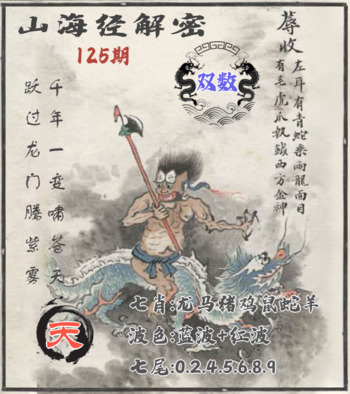 山海经解密
125期
双数
蓐收
左耳有青蛇乘两龍面目
有毛虎爪執鉞西方金神
千年一变啸苍天
跃过龙门腾紫雾
天
七肖:龙马猪鸡鼠蛇羊
波色:蓝波+红波
七尾:0.2.4.5.6.8.9